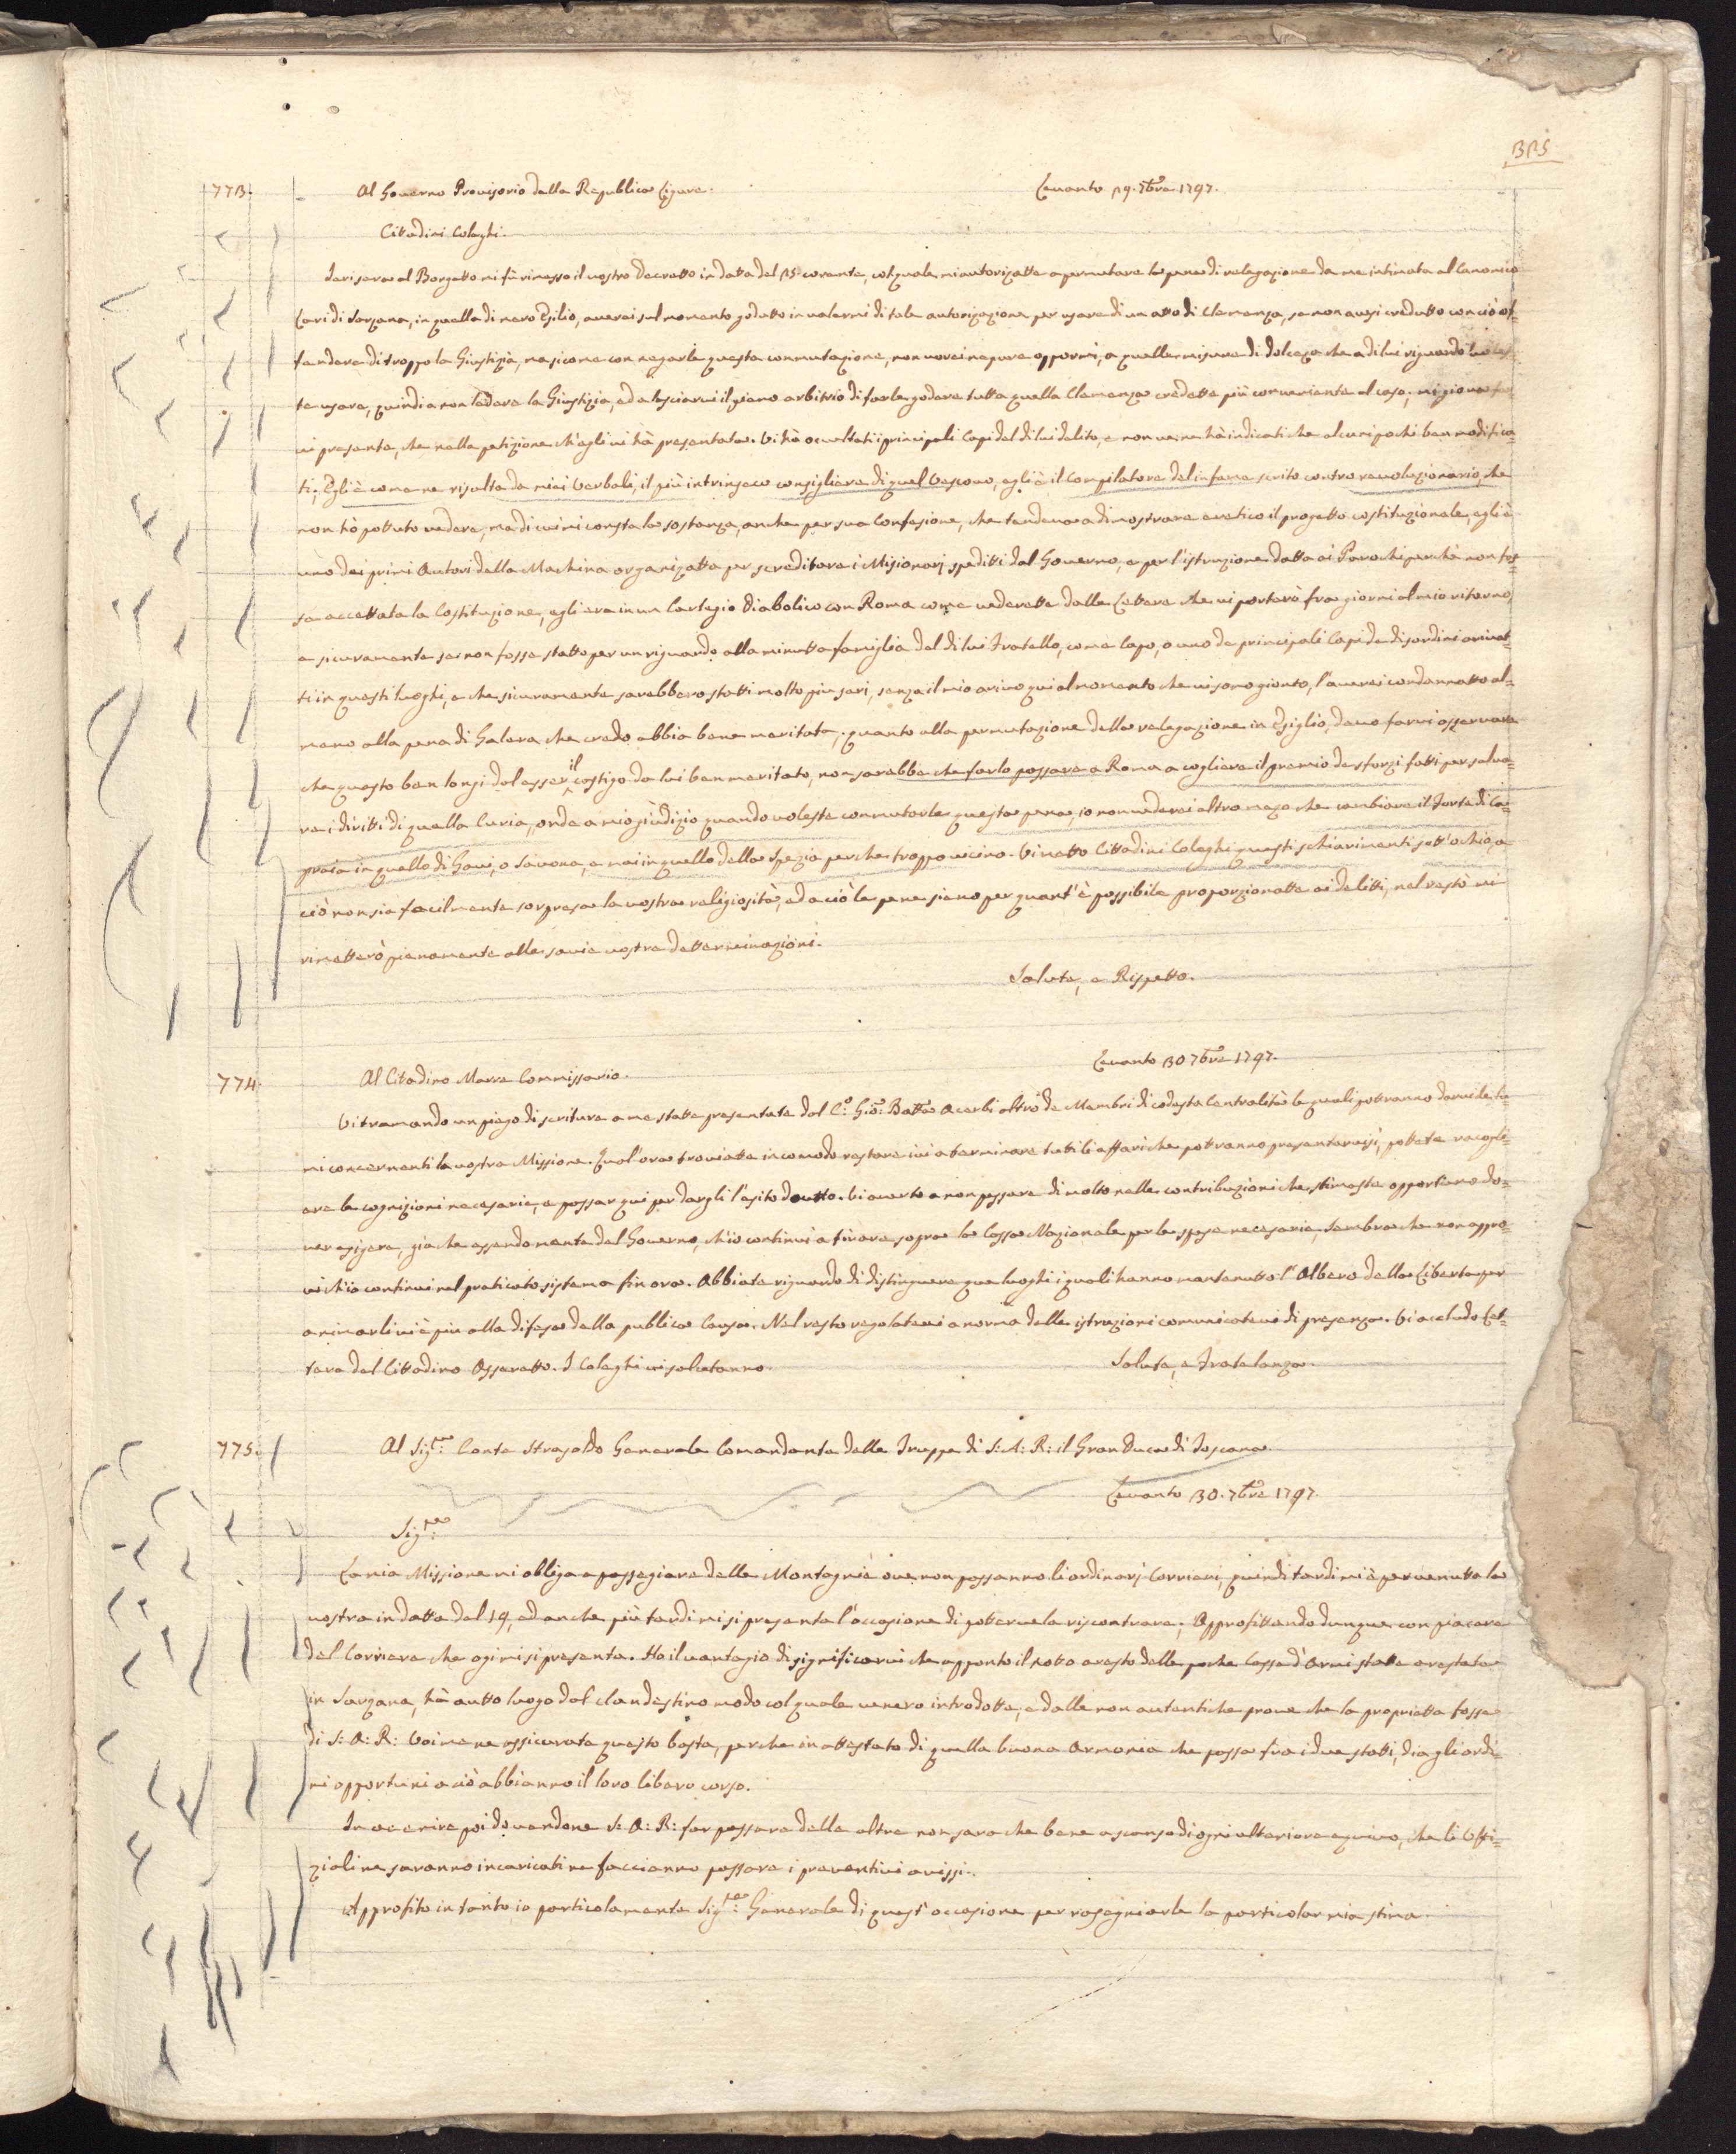 325
773. Al Governo Provisorio della Republica Ligure. Levanto 29. 7bre 1797.
Cittadini Coleghi.
Jeri sera al Borgetto mi fù rimesso il vostro Decretto in datta del 25. corente, col quale mi autorizatte a permutare la pena di relegazione da me intimata al Canonico
Lari di Sarzana, in quella di mero Esilio, averei sul momento goduto in valermi di tale autorizazione per usare di un atto di Clemenza, se non avesi credutto con ciò of=
fendere di troppo la Giustizia, ma sicome con negarle questa commutazione, non vorei nepure oppormi, a quelle misure di dolceza che a di lui riguardo
te usare, quindi a non ledere la Giustizia, ed a lasciarvi il pieno arbitrio di farle godere tutta quella Clemenza credette più conveniente al caso, mi giova
vi presente, che nella petizione ch'egli vi hà presentata. Vi hà occultati i principali Capi del di lui delito, e non ve ne hà indicati che alcuni pochi ben modifica=
ti, Egli è come ne risulta da miei Verbali, il più intrinseco consigliere di quel Vescovo, egli è il Compilatore del infame scrito contro revoluzionario, che
non hò pottuto vedere, ma di cui mi consta la sostanza, anche per sua Confesione, che tendeva a dimostrare eretico il progetto costituzionale, egli è
uno dei primi Autori della Machina organizatta per screditare i Misionarj spediti dal Governo, e per l'istruzione datta ai Parochi perchè non fos=
se accettata la Costituzione, egli era in un Cartegio Diabolico con Roma come vederette dalle Lettere che vi porterò fra giorni al mio ritorno,
e sicuramente se non fosse statto per un riguardo alla minutta famiglia del di lui Fratello, come Capo, o uno de principali Capi de disordini arivat=
ti in questi luoghi, e che sicuramente sarebbero statti molto più seri, senza il mio arivo qui al momento che vi sono gionto, l'averei condannatto al=
meno alla pena di Galera che credo abbia bene meritata, quanto alla permutazione della relegazione in Esiglio, devo farvi osservare
che questo ben longi dal esser il castigo da lui ben meritato, non sarebbe che farlo passare a Roma a cogliere il premio de sforzi fatti per salva=
re i diritti di quella Curia, onde a mio giudizio quando voleste commutarle questa pena, io non vederei altro mezo che cambiare il Forte di Ca=
praia in quello di Gavi, o Savona, e mai in quello della Spezia perche troppo vicino. Vi metto Cittadini Coleghi questi schiarimenti sott'ochio, a
ciò non sia facilmente sorpresa la vostra religiosità, ed a ciò le pene siano per quant'è possibile proporzionatte ai delitti, nel restò mi
rimetterò pienamente alle savie vostre determinazioni.
Salute, e Rispetto.
Levanto 30 7bre 1797.
774. Al Citadino Marre Commissario.
Vi tramando un piego di scriture a me state presentate dal C.o Gio: Batta Acerbi altro de Membri di codesta Centralità le quali potranno darvi de lu=
mi concernenti la vostra Missione. Qual'ora troviatte incomodo restare ivi a terminare tutti li affari che potranno presentarvisi, pottete racogli=
ere le cognizioni necesarie, e passar qui per dargli l'esito douto. Vi averto a non pessare di molto nelle contribuzioni che stimaste opportuno do=
ver esigere, già che essendo mente del Governo, ch'io continui a tirare sopra la Cassa Nazionale per le spese necesarie, sembra che non appro=
vi ch'io continui nel praticato sistema fin ora. Abbiate riguardo di distinguere que luoghi i quali hanno mantenutto l'Albero della Liberta per
animarli vi è più alla difesa della publica Causa. Nel resto regolatevi a norma delle istruzioni comunicatevi di presenza. Vi acludo Let=
tera del Cittadino Assaretto. I Coleghi vi salutanno. Salute, e Fratelanza.
775. Al Sig.re Conte Strasoldo Generale Comandante delle Truppe di S: A: R: il Gran Duca di Toscana.
Levanto 30. 7bre 1797.
Sig.re
La mia Missione mi obliga a passegiare delle Montagnie ove non passanno li ordinarj Corrieri, quindi tardi mi è pervenutta la
vostra in datta del 19, ed anche più tardi mi si presenta l'occasione di potervela riscontrare. Approfittando dunque con piacere
del Corriere che ogi mi si presenta. Ho il vantagio di significarvi che apponto il solto aresto delle poche Casse d'Armi state arestate
in Sarzana, hà autto luogo dal clandestino modo col quale venero introdotte, e dalle non autentiche prove che la proprietta fosse
di S: A: R: Voi me ne assicurate questo basta, perche in attestato di quella buona Armonia che passa fra i due statti, dia gli ordi=
ni opportuni a ciò abbianno il loro libero corso.
In avenire poi dovendone S: A: R: far passare delle altre non sara che bene a scanso di ogni ulteriore equivoco, che li Uffi=
ziali ne saranno incaricati ne faccianno passare i preventivi avissi.
Approfito in tanto io particolamente Sig.re Generale di quest'occasione per rasegniarle la particolar mia stima.